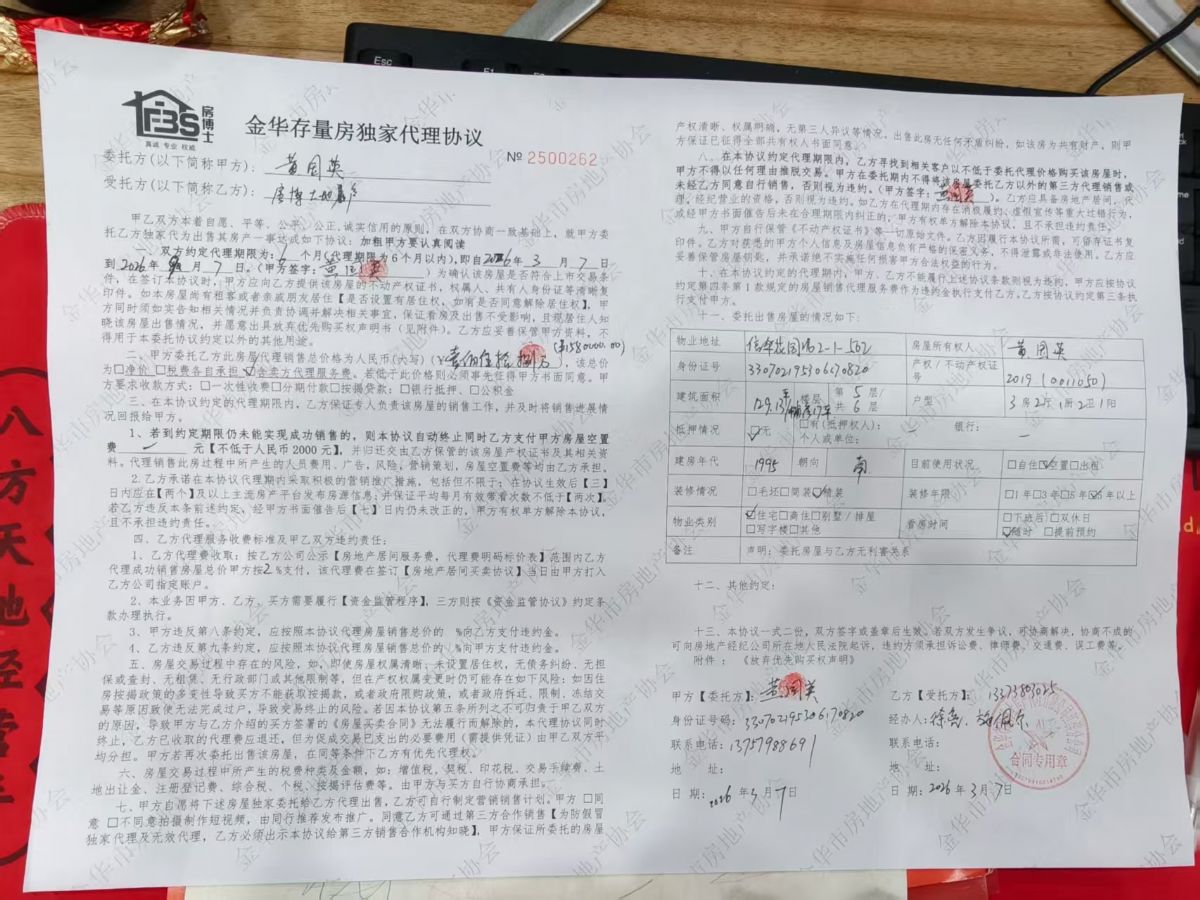 Esc
FBS
房博士
真诚 专业 权威
金华存量房独家代理协议
№ 2500262
委托方(以下简称甲方): 黄国英
受托方(以下简称乙方): 房博士
甲乙双方本着自愿、平等、公平、公正、诚实信用的原则，在双方协商一致基础上，就甲方委
托乙方独家代为出售其房产一事达成如下协议：加粗甲方要认真阅读
一、双方约定代理期限为： 个月(代理期限为6个月以内)，即自2026年3月7日
到2026年 月7日。(甲方签字：黄国英)为确认该房屋是否符合上市交易条
件，在签订本协议时，甲方应向乙方提供该房屋的不动产权证书，权属人、共有人身份证等清晰复
印件。如本房屋尚有租客或者亲戚朋友居住【是否设置有居住权，如有是否同意解除居住权】，甲
方同时须如实告知相关情况并负责协调并解决相关事宜，保证看房及出售不受影响，且现居住人知
晓该房屋出售情况，并愿意出具放弃优先购买权声明书（见附件）。乙方应妥善保管甲方资料，不
得用于本委托协议约定以外的其他用途。
二、甲方委托乙方此房屋代理销售总价格为人民币(大写)(￥壹佰伍拾捌万)，该总价 (¥1580000.00)
为□净价 □税费各自承担 ☑含卖方代理服务费。若低于此价格则必须事先征得甲方书面同意。甲
方要求收款方式：□一次性收费□分期付款□按揭贷款：□银行抵押、□公积金
三、在本协议约定的代理期限内，乙方保证专人负责该房屋的销售工作，并及时将销售进展情
况回报给甲方。
1、若到约定期限仍未能实现成功销售的，则本协议自动终止同时乙方支付甲方房屋空置
费 — 元【不低于人民币2000元】，并归还交由乙方保管的该房屋产权证书及其相关资
料。代理销售此房过程中所产生的人员费用、广告，风险，营销策划，房屋空置费等均由乙方承担。
2.乙方承诺在本协议代理期内采取积极的营销推广措施，包括但不限于：在协议生效后【三】
日内应在【两个】及以上主流房产平台发布房源信息；并保证平均每月有效带看次数不低于【两次】。
若乙方违反本条前述约定，经甲方书面催告后【七】日内仍未改正的，甲方有权单方解除本协议，
且不承担违约责任。
四、乙方代理服务收费标准及甲乙双方违约责任：
1、乙方代理费收取：按乙方公司公示【房地产居间服务费，代理费明码标价表】范围内乙方
代理成功销售房屋总价甲方按2%支付，该代理费在签订【房地产居间买卖协议】当日由甲方打入
乙方公司指定账户。
2、本业务因甲方、乙方、买方需要履行【资金监管程序】，三方则按《资金监管协议》约定条
款办理执行。
3、甲方违反第八条约定，应按照本协议代理房屋销售总价的 %向乙方支付违约金。
4、乙方违反第九条约定，应按照本协议代理房屋销售总价的 %向甲方支付违约金。
五、房屋交易过程中存在的风险，如，即使房屋权属清晰；未设置居住权，无债务纠纷、无担
保或查封、无租赁、无行政部门或其他限制等，但在产权属变更时仍可能存在如下风险：如因住
房按揭政策的多变性导致买方不能获取按揭款，或者政府限购政策，或者政府拆迁、限制、冻结交
易等原因致使无法完成过户，导致交易终止的风险。若因本协议第五条所列之不可归责于甲乙双方
的原因，导致甲方与乙方介绍的买方签署的《房屋买卖合同》无法履行而解除的，本代理协议同时
终止，乙方已收取的代理费应退还，但为促成交易已支出的必要费用（需提供凭证）由甲乙双方平
均分担。甲方若再次委托出售该房屋，在同等条件下乙方有优先代理权。
六、房屋交易过程中所产生的税费种类及金额，如：增值税、契税、印花税、交易手续费、土
地出让金、注册登记费、综合税、个税、按揭评估费等。由甲方与买方自行协商承担。
七、甲方自愿将下述房屋独家委托给乙方代理出售，乙方可自行制定营销销售计划。甲方 □同
意 □不同意拍摄制作短视频，由同行推荐发布推广。同意乙方可通过第三方合作销售【为防假冒
独家代理及无效代理，乙方必须出示本协议给第三方销售合作机构知晓】，甲方保证所委托的房屋
产权清晰、权属明确，无第三人异议等情况，出售此房无任何矛盾纠纷，如该房为共有财产，则甲
方保证已征得全部共有权人书面同意。
八、在本协议约定代理期限内，乙方寻找到相关客户以不低于委托代理价格购买该房屋时，
甲方不得以任何理由推脱交易。甲方在委托期内不得将该房屋委托乙方以外的第三方代理销售或
未经乙方同意自行销售，否则视为违约。(甲方签字：黄国英)。乙方应具备房地产居间，代
理，经纪营业的资格，否则视为违约。如乙方在代理期内存在消极履约、虚假宣传等重大过错行为，
或经甲方书面催告后未在合理期限内纠正的，甲方有权单方解除本协议，且不承担违约责任。
九、甲方自行保管《不动产权证书》等一切原始文件。乙方因履行本协议所需，可留存证书复
印件。乙方对获悉的甲方个人信息及房屋信息负有严格的保密义务，不得泄露或非法使用。乙方应
妥善保管房屋钥匙，并承诺绝不实施任何损害甲方合法权益的行为。
十、在本协议约定的代理期内，甲方、乙方不能履行上述协议条款则视为违约，甲方应按协议
约定第四条第1款规定的房屋销售代理服务费作为违约金执行支付乙方。乙方按协议约定第三条执
行支付甲方。
十一、委托出售房屋的情况如下：
物业地址 信华花园 2-1-502 房屋所有权人 黄国英
身份证号 330702195306170820 产权/不动产权证号 2019(0011050)
建筑面积 129.13平 楼层 第5层/共6层 户型 3房2厅1厨2卫1阳
抵押情况 ☑无 □有(抵押权人): 个人或单位: — 银行: —
建房年代 1995 朝向 南 目前使用状况 □自住☑空置□出租
装修情况 □毛坯□简装☑精装 装修年限 □1年□3年□5年☑5年以上
物业类别 ☑住宅□商住□别墅/排屋 □写字楼□其他 看房时间 □下班后□双休日 ☑随时 □提前预约
备注 声明：委托房屋与乙方无利害关系
十二、其他约定：
十三、本协议一式二份，双方签字或盖章后生效。若双方发生争议，可协商解决，协商不成的
可向房地产经纪公司所在地人民法院起诉，违约方须承担诉讼费、律师费、交通费、误工费等。
附件：《放弃优先购买权声明》
甲方【委托方】：黄国英
身份证号码：330702195306170820
联系电话：13757988691
地 址：
日 期：2026年3月7日
乙方【受托方】：13373803025
经办人：
联系电话：
地 址：
日 期：2026年3月7日
合同专用章
金华市房地产协会
八方天地经营丰